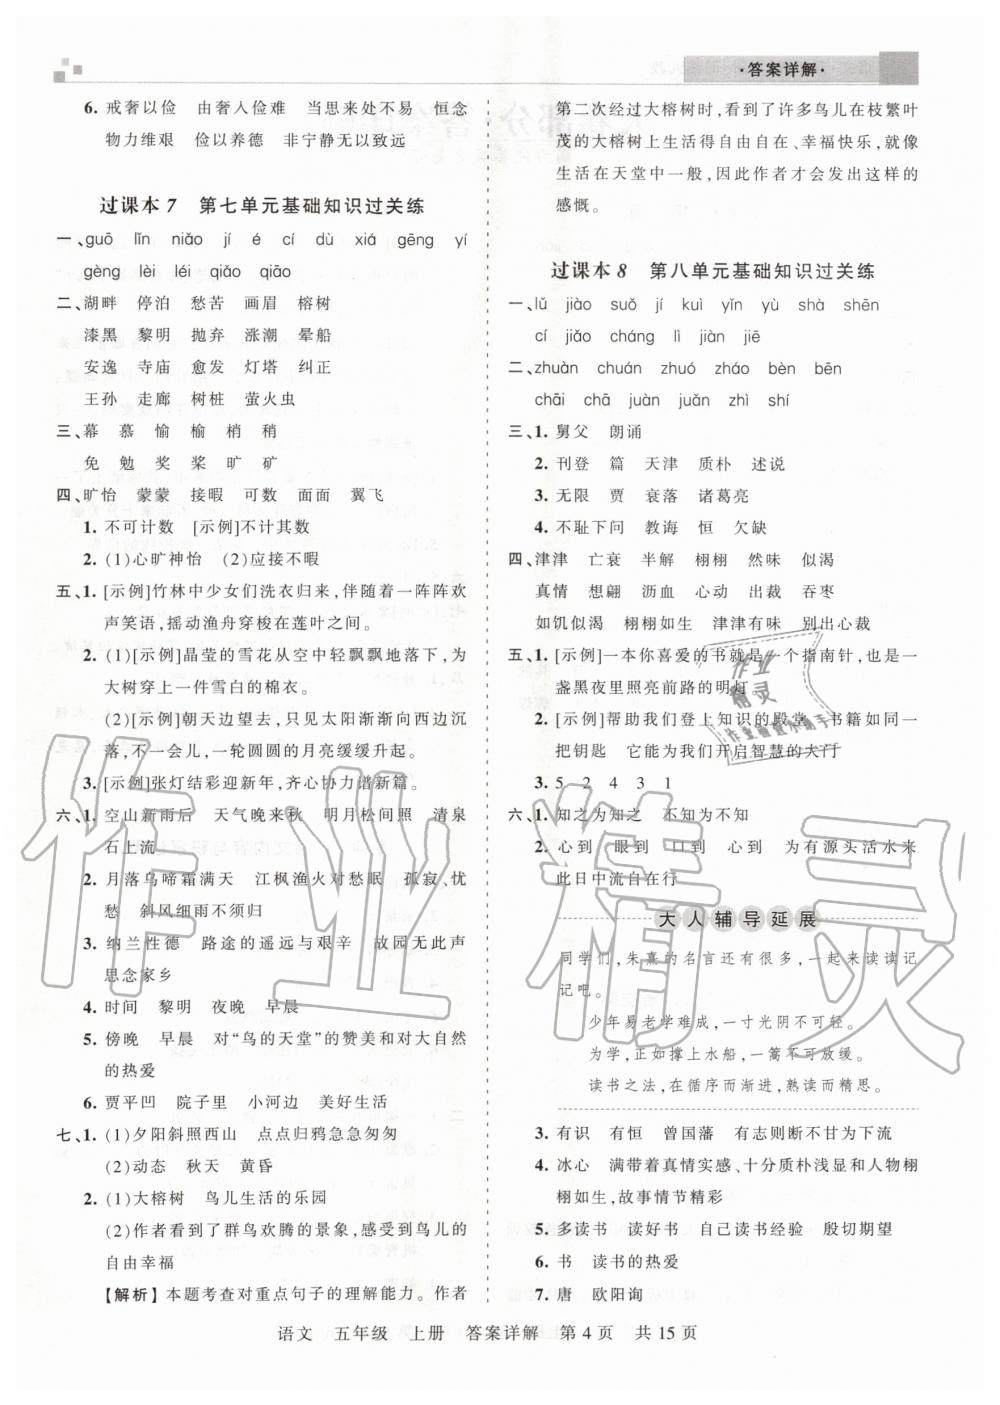 ·答案详解·
6. 戒奢以俭 由奢入俭难 当思来处不易 恒念
物力维艰 俭以养德 非宁静无以致远
过课本 7 第七单元基础知识过关练
一、guō lǐn niǎo jí é cí dù xiá gēng yí
gèng lèi léi qiǎo qiāo
二、湖畔 停泊 愁苦 画眉 榕树
漆黑 黎明 抛弃 涨潮 晕船
安逸 寺庙 愈发 灯塔 纠正
王孙 走廊 树桩 萤火虫
三、幕 慕 愉 榆 梢 稍
免 勉 奖 桨 旷 矿
四、旷怡 蒙蒙 接暇 可数 面面 翼飞
1. 不可计数 [示例]不计其数
2. (1)心旷神怡 (2)应接不暇
五、1. [示例]竹林中少女们洗衣归来,伴随着一阵阵欢
声笑语,摇动渔舟穿梭在莲叶之间。
2. (1)[示例]晶莹的雪花从空中轻飘飘地落下,为
大树穿上一件雪白的棉衣。
(2)[示例]朝天边望去,只见太阳渐渐向西边沉
落,不一会儿,一轮圆圆的月亮缓缓升起。
3. [示例]张灯结彩迎新年,齐心协力谱新篇。
六、1. 空山新雨后 天气晚来秋 明月松间照 清泉
石上流
2. 月落乌啼霜满天 江枫渔火对愁眠 孤寂、忧
愁 斜风细雨不须归
3. 纳兰性德 路途的遥远与艰辛 故园无此声
思念家乡
4. 时间 黎明 夜晚 早晨
5. 傍晚 早晨 对“鸟的天堂”的赞美和对大自然
的热爱
6. 贾平凹 院子里 小河边 美好生活
七、1. (1)夕阳斜照西山 点点归鸦急急匆匆
(2)动态 秋天 黄昏
2. (1)大榕树 鸟儿生活的乐园
(2)作者看到了群鸟欢腾的景象,感受到鸟儿的
自由幸福
【解析】本题考查对重点句子的理解能力。作者
第二次经过大榕树时,看到了许多鸟儿在枝繁叶
茂的大榕树上生活得自由自在、幸福快乐,就像
生活在天堂中一般,因此作者才会发出这样的
感慨。
过课本 8 第八单元基础知识过关练
一、lǔ jiào suǒ jí kuì yǐn yù shà shēn
cí jiǎo cháng lì jiàn jiē
二、zhuàn chuán zhuó zháo bèn bēn
chāi chā juàn juǎn zhì shí
三、1. 舅父 朗诵
2. 刊登 篇 天津 质朴 述说
3. 无限 贾 衰落 诸葛亮
4. 不耻下问 教诲 恒 欠缺
四、津津 亡衰 半解 栩栩 然味 似渴
真情 想翩 沥血 心动 出裁 吞枣
如饥似渴 栩栩如生 津津有味 别出心裁
五、1. [示例]一本你喜爱的书就是一个指南针,也是一
盏黑夜里照亮前路的明灯。
2. [示例]帮助我们登上知识的殿堂 书籍如同一
把钥匙 它能为我们开启智慧的大门
3. 5 2 4 3 1
六、1. 知之为知之 不知为不知
2. 心到 眼到 口到 心到 为有源头活水来
此日中流自在行
大人辅导延展
同学们,朱熹的名言还有很多,一起来读读记
记吧。
少年易老学难成,一寸光阴不可轻。
为学,正如撑上水船,一篙不可放缓。
读书之法,在循序而渐进,熟读而精思。
3. 有识 有恒 曾国藩 有志则断不甘为下流
4. 冰心 满带着真情实感、十分质朴浅显和人物栩
栩如生,故事情节精彩
5. 多读书 读好书 自己读书经验 殷切期望
6. 书 读书的热爱
7. 唐 欧阳询
作业
精灵
作业检查小助手
作业精灵
语文 五年级 上册 答案详解 第 4 页 共 15 页